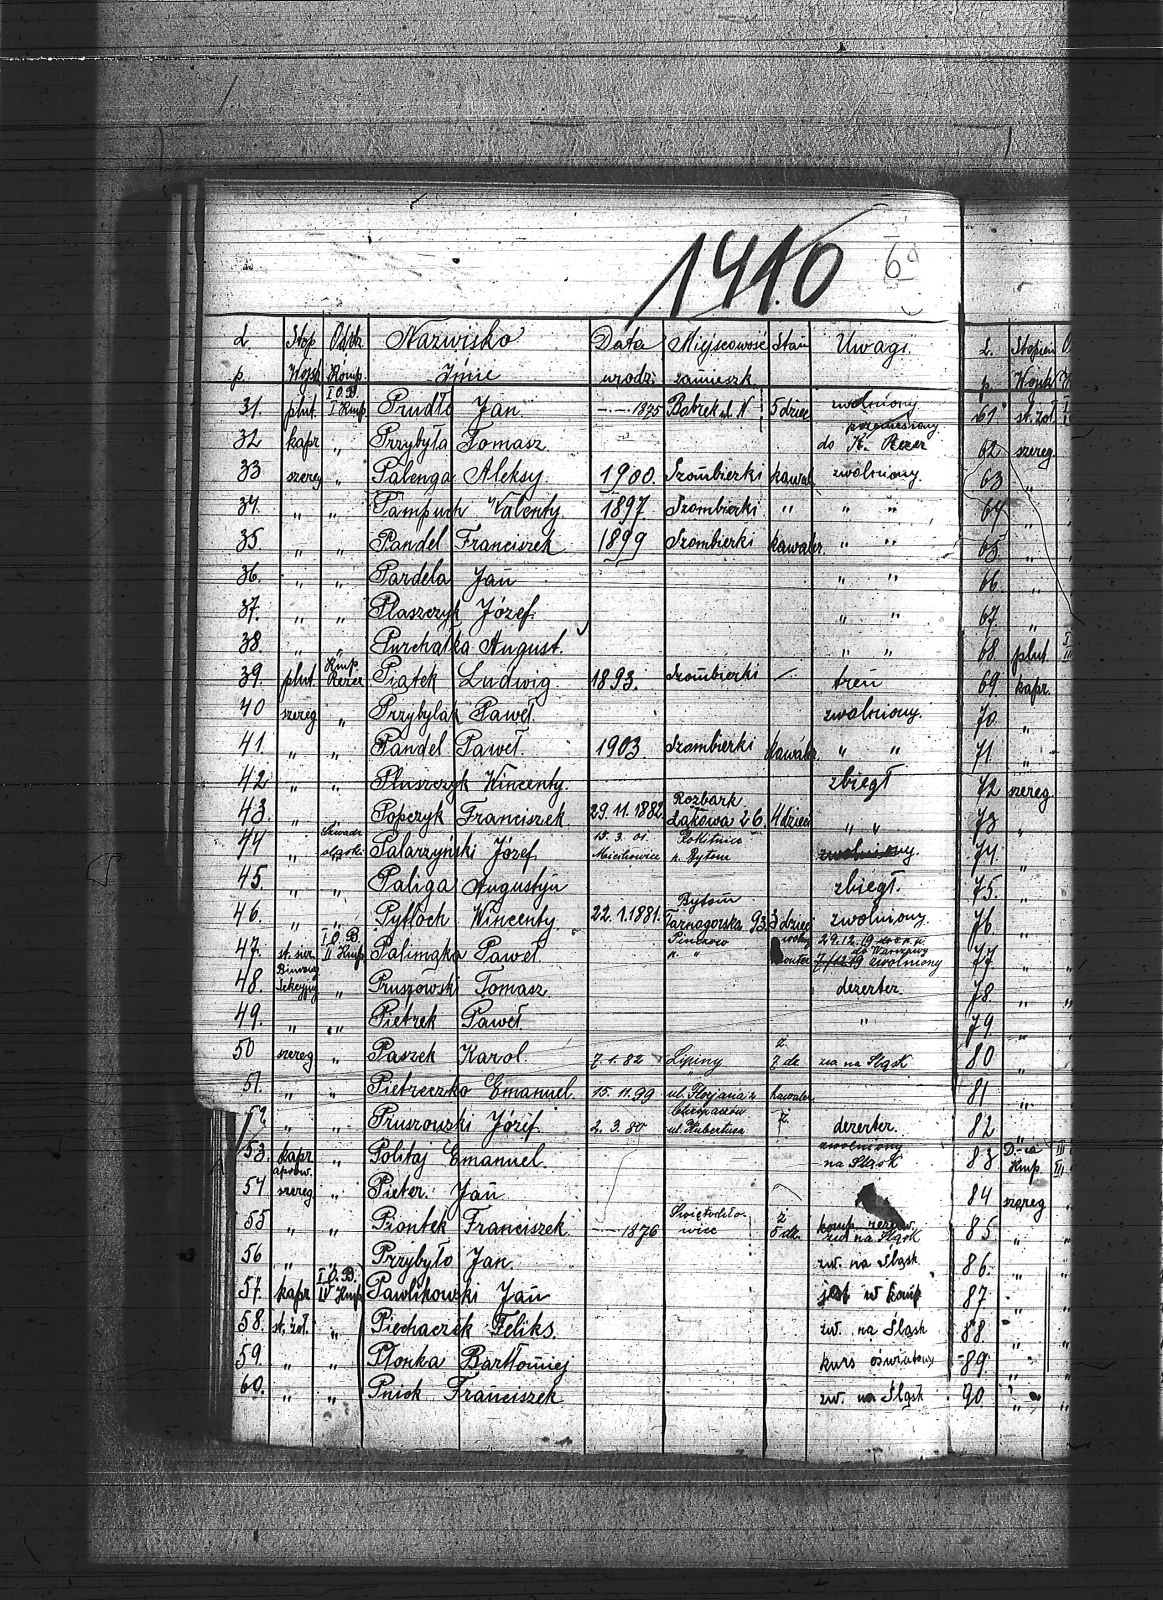 1410
6a
L. Stop Oddz. Nazwisko Data Miejscowość Stan Uwagi
p. Wojsk Komp. Imie urodz. zamieszk.
31. plut. I O.B. I Kmp. Prudło Jan — 1875 Bobrek ul. N 5 dziec zwolniony
32 kapr „ Przybyła Tomasz przeniesiony do K. Rezer
33 szereg „ Palenga Aleksy 1900. Szombierki kawal. zwolniony.
34. „ „ Pampuch Valenty. 1897. Szombierki „ „ „
35 „ „ Pandel Franciszek 1899 Szombierki kawaler. „ „
36. „ „ Pardela Jan „ „
37. „ „ Plaszczyk Józef „ „
38. „ „ Purchałka August. „ „
39. plut. Kmp. Rezer Piątek Ludwig 1893. Szombierki — tren
40 szereg „ Przybylak Paweł. zwolniony.
41. „ „ Pandel Paweł. 1903 Szombierki kawaler. „ „
42. „ „ Pluszczyk Wincenty. zbiegł
43. „ „ Popczyk Franciszek 29.11.1882 Rozbark Łąkowa 26 4 dzieci „ „
44 „ Szwadr. Palarzyński Józef. 15.3.01. Miechowice Rokitnica p. Bytom zwolniony.
45 „ „ Paliga Augustyn zbiegł.
46. „ „ Pytloch Wincenty 22.1.1881. Bytom Tarnogorska 93. 3 dzieci zwolniony
47. I O.B. II Kmp. Palimąka Paweł 29.12.19 do Warszawy 7/12.19 zwolniony
48. Sekcyjny „ Pruszowski Tomasz dezerter.
49. „ „ Pietrek Paweł. „
50 szereg „ Paszek Karol. 7.1.82 Lipiny ż. 7 dz. zw na Śląsk
51. „ „ Pietreczko Emanuel. 15.11.99 ul. Florjana kawaler.
52. „ „ Pruszowski Józef. 2.3.80 Chropaczów ul. Hubertusa ż. dezerter.
53. kapr. aprow. „ Politaj Emanuel. zwolniony na Śląsk
54. szereg „ Pieter. Jan
55 „ „ Piontek Franciszek — 1876 Świętochłowice ż 5 dz. komp. rezerw. zw. na Śląsk
56 „ „ Przybyło Jan. zw. na Śląsk
57. kapr I O.B. IV Kmp. Pawlikowski Jan jest w komp
58. st. żoł. „ Piechaczek Feliks. zw. na Śląsk
59. „ „ Płonka Bartłomiej kurs oświatowy
60. „ „ Pniok Franciszek zw. na Śląsk
L. Stopień
p. Wojsk
61 st. żoł
62 szereg.
63 „
64 „
65. „
66. „
67. „
68 plut.
69 kapr.
70. „
71. „
72 szereg.
73 „
74. „
75. „
76. „
77. „
78. „
79. „
80 „
81 „
82 „
83 D-ca Kmp. III
84 szereg „
85. „ „
86. „ „
87 „
88. „
89. „ „
90. „ „